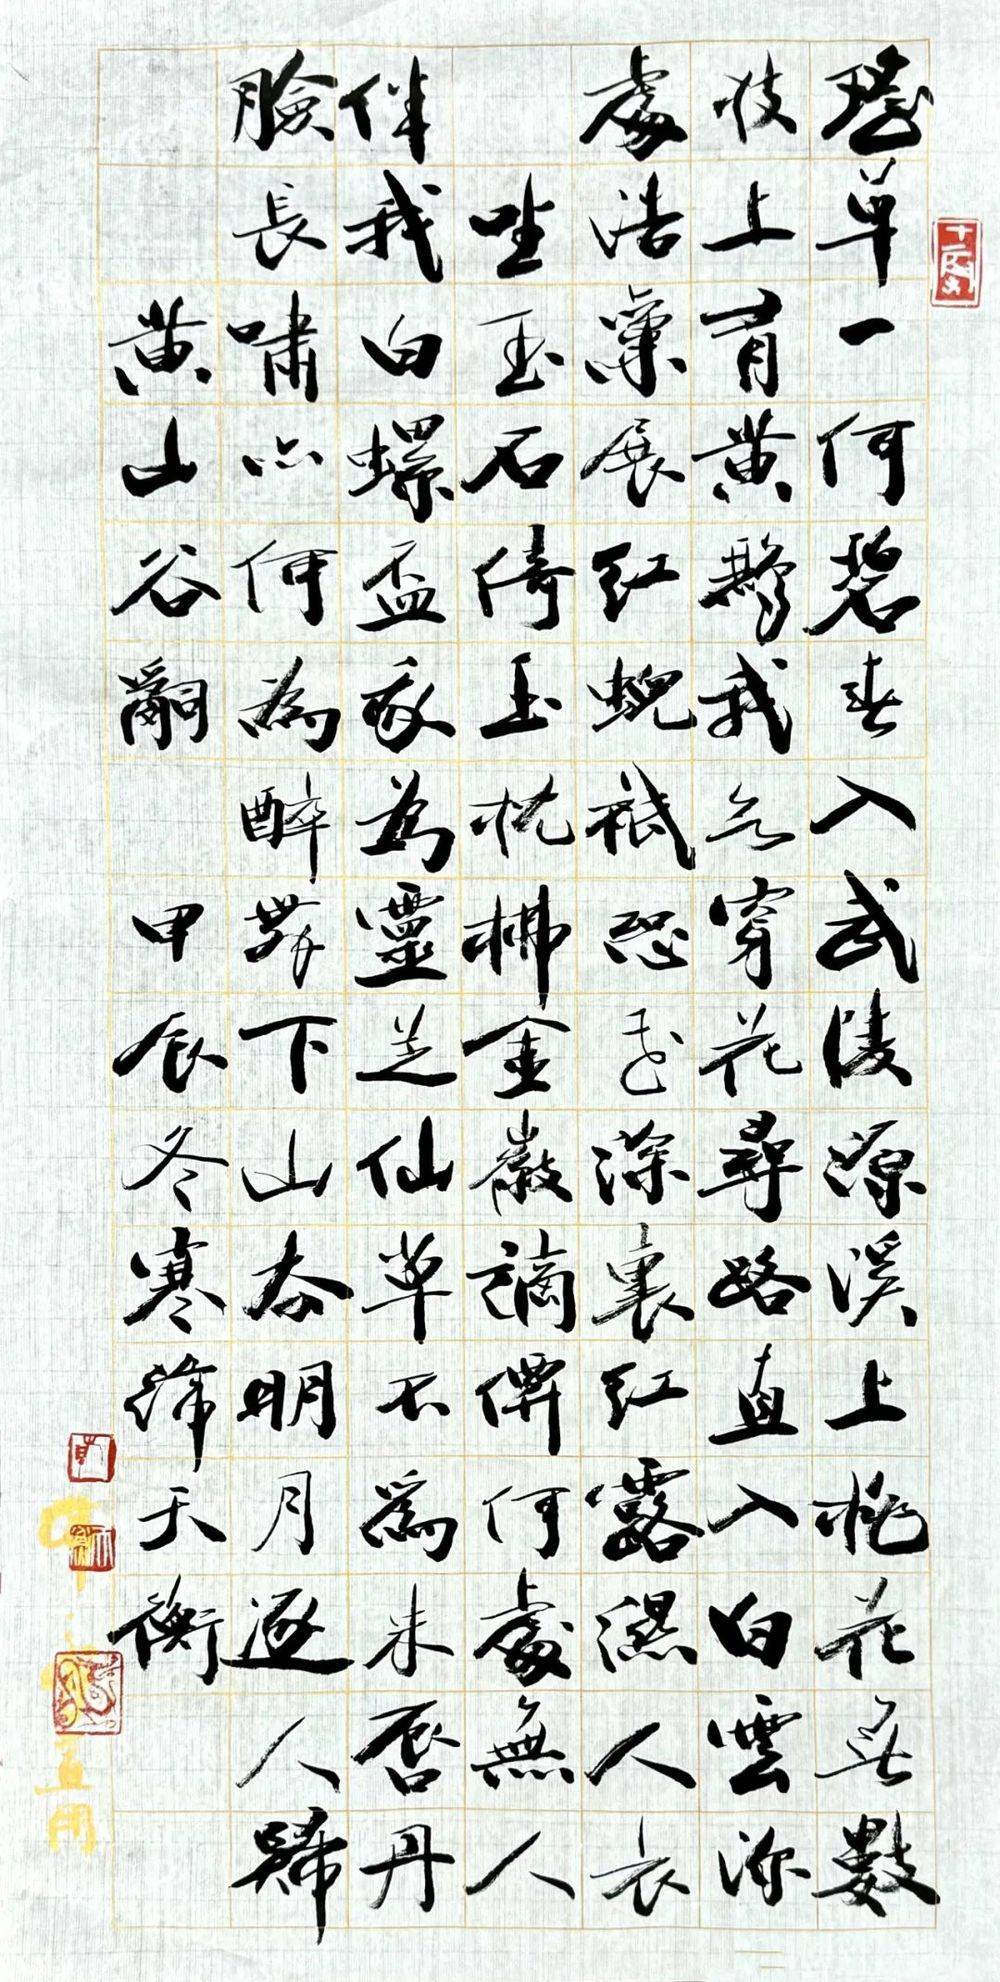 瑶草一何碧春入武陵源溪上桃花無數
枝上有黄鸝我欲穿花尋路直入白雲深
處浩氣展紅蜺祇恐花深裏紅露濕人衣
坐玉石倚玉枕拂金徽謫僊何處無人
伴我白螺盃我為靈芝仙草不為朱唇丹
臉長嘯亦何為醉舞下山去明月逐人歸
黄山谷詞 甲辰冬寒韓天衡